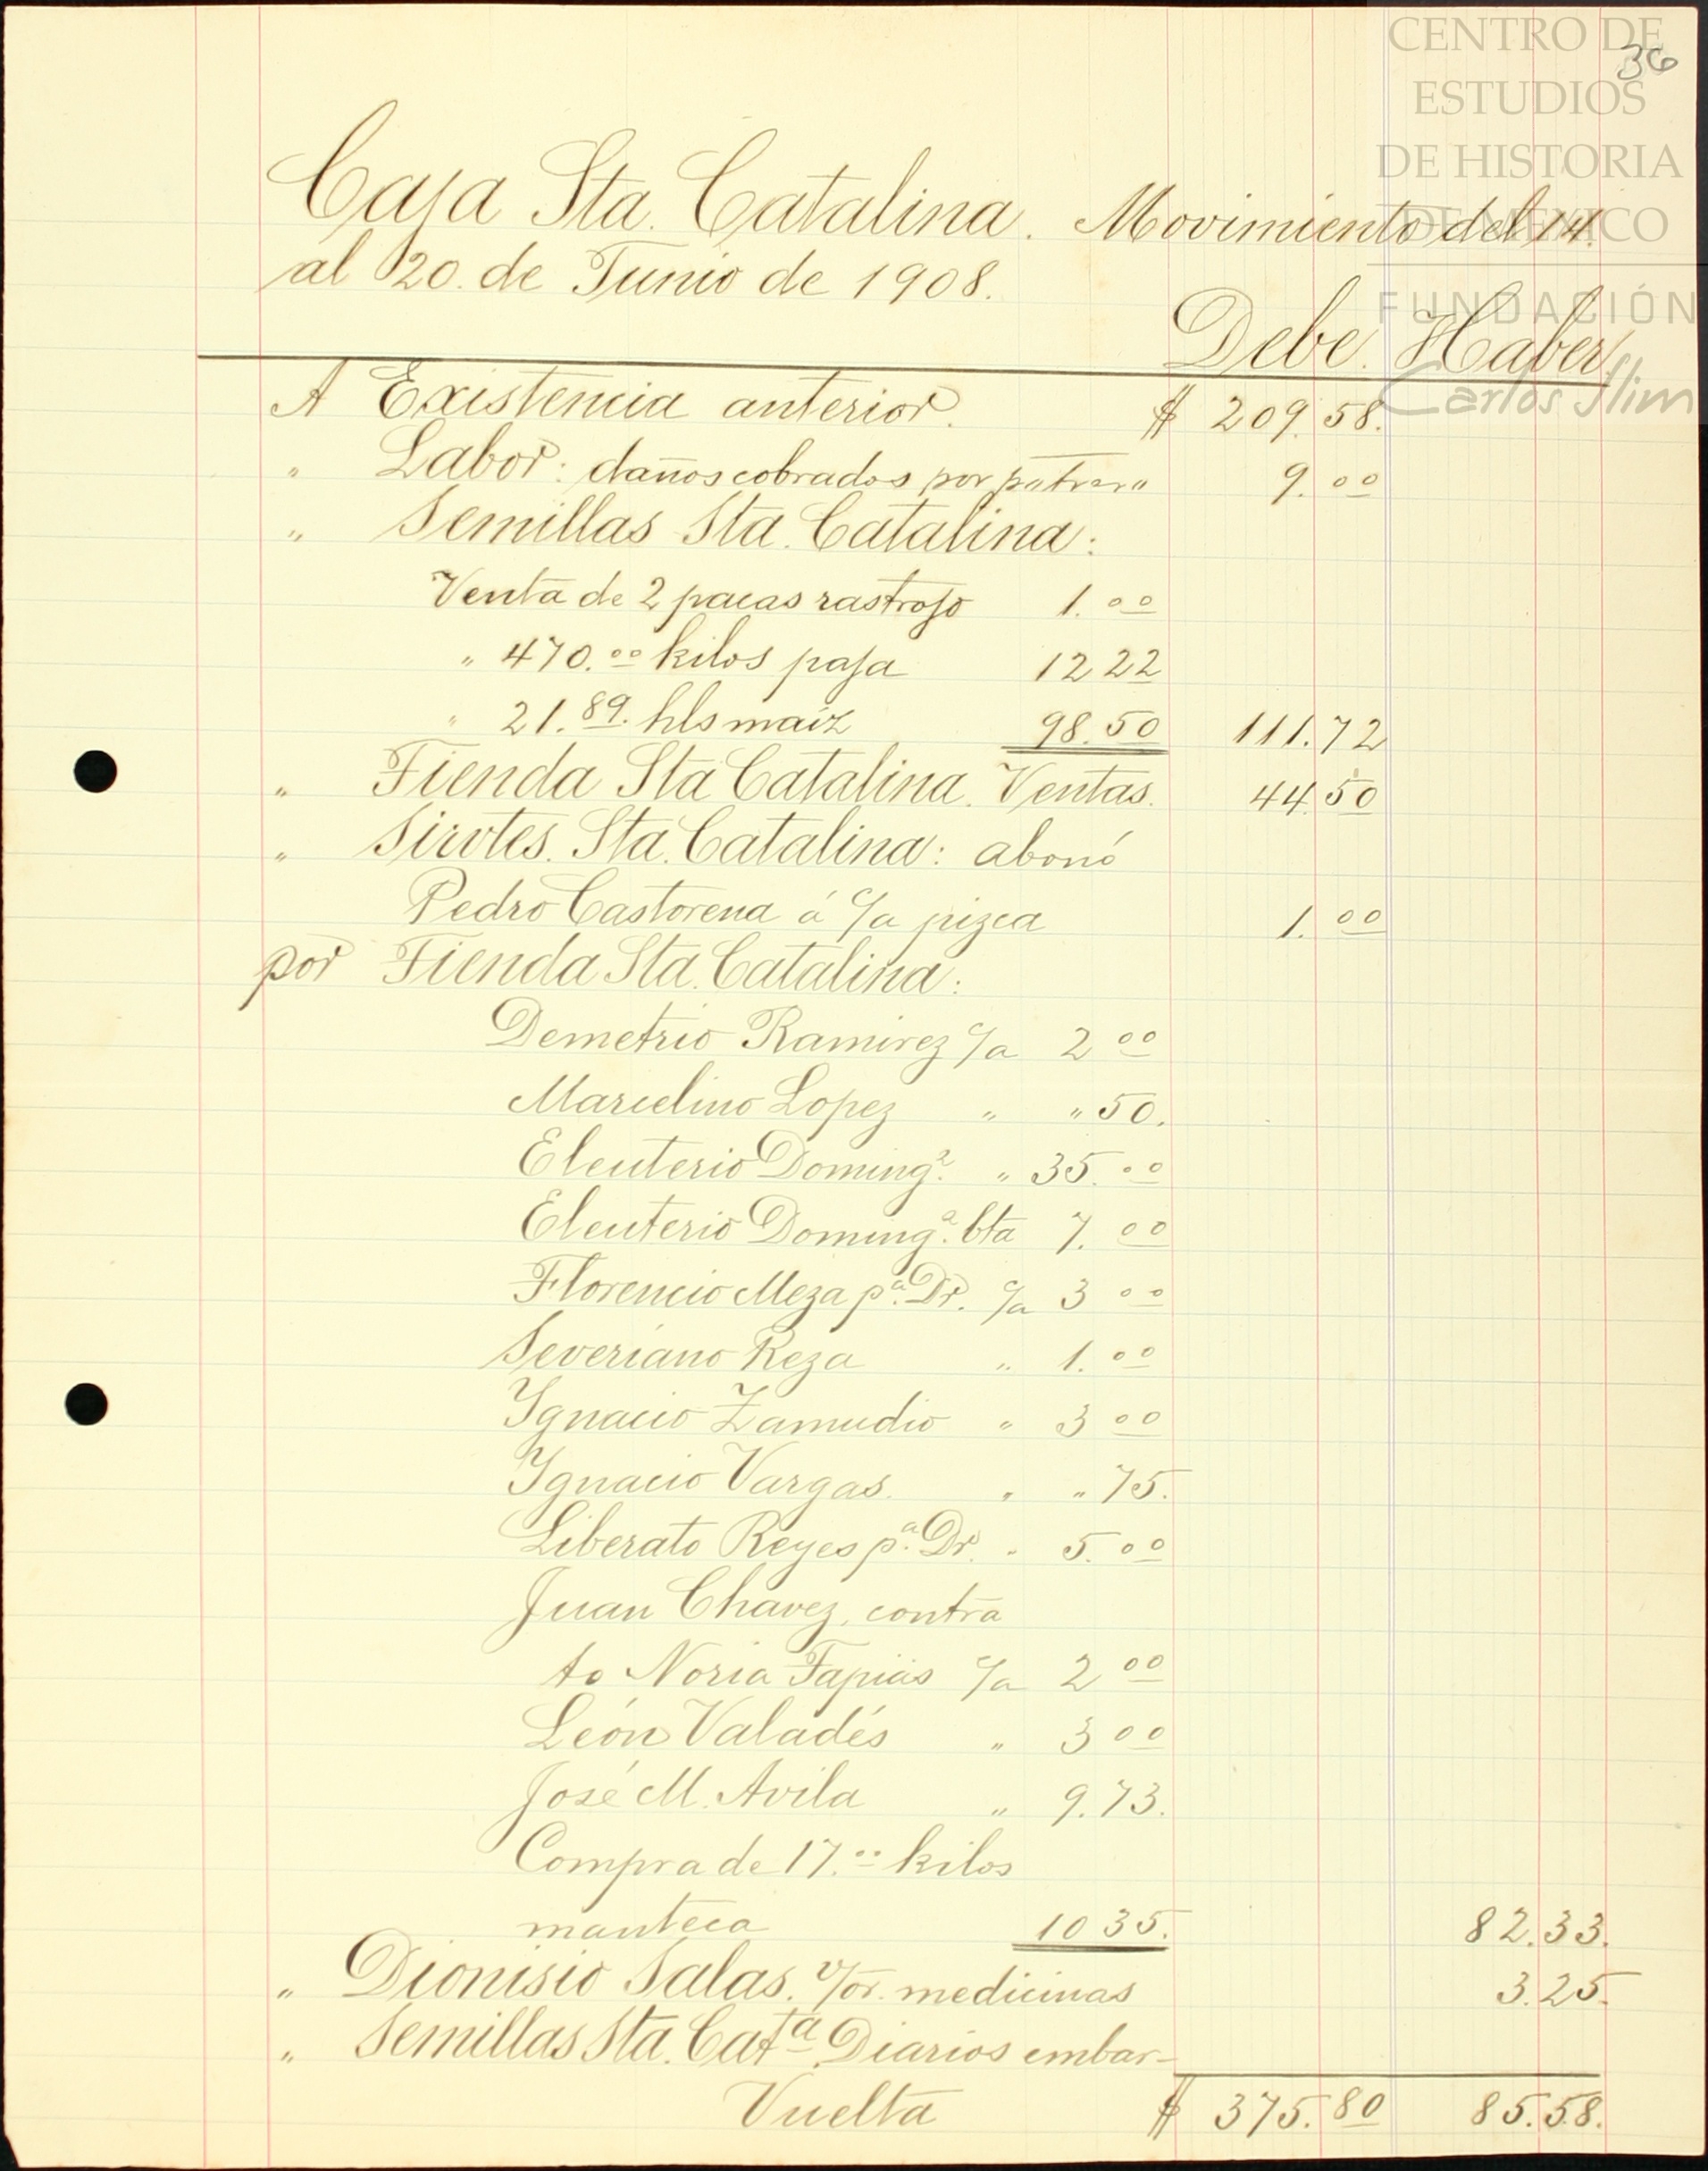 CENTRO DE
ESTUDIOS
DE HISTORIA
DE MEXICO
FUNDACIÓN
Carlos Slim
36
Caja Sta. Catalina. Movimiento del 14.
al 20. de Junio de 1908.
Debe. Haber
A Existencia anterior. $ 209.58.
" Labor: daños cobrados por potrero 9.00
" Semillas Sta. Catalina:
Venta de 2 pacas rastrojo 1.00
" 470.00 kilos paja 12 22
" 21.89. hls maiz 98.50 111.72
" Tienda Sta Catalina. Ventas. 44.50
" Sirvtes. Sta. Catalina: abonó
Pedro Castorena á c/a pizca 1.00
por Tienda Sta. Catalina:
Demetrio Ramirez c/a 2 00
Marcelino Lopez " " 50.
Eleuterio Doming². " 35.00
Eleuterio Doming². cta 7.00
Florencio Meza pª. Dr. c/a 3 00
Severiano Reza " 1.00
Ygnacio Zamudio " 3 00
Ygnacio Vargas. " " 75.
Liberato Reyes pª. Dr. " 5.00
Juan Chavez, contra
to Noria Tapias c/a 2 00
León Valadés " 3 00
José M. Avila " 9.73.
Compra de 17.00 kilos
manteca 10 35. 82.33.
" Dionisio Salas. v/or. medicinas 3.25.
" Semillas Sta. Catª. Diarios embar-
Vuelta $ 375.80 85.58.